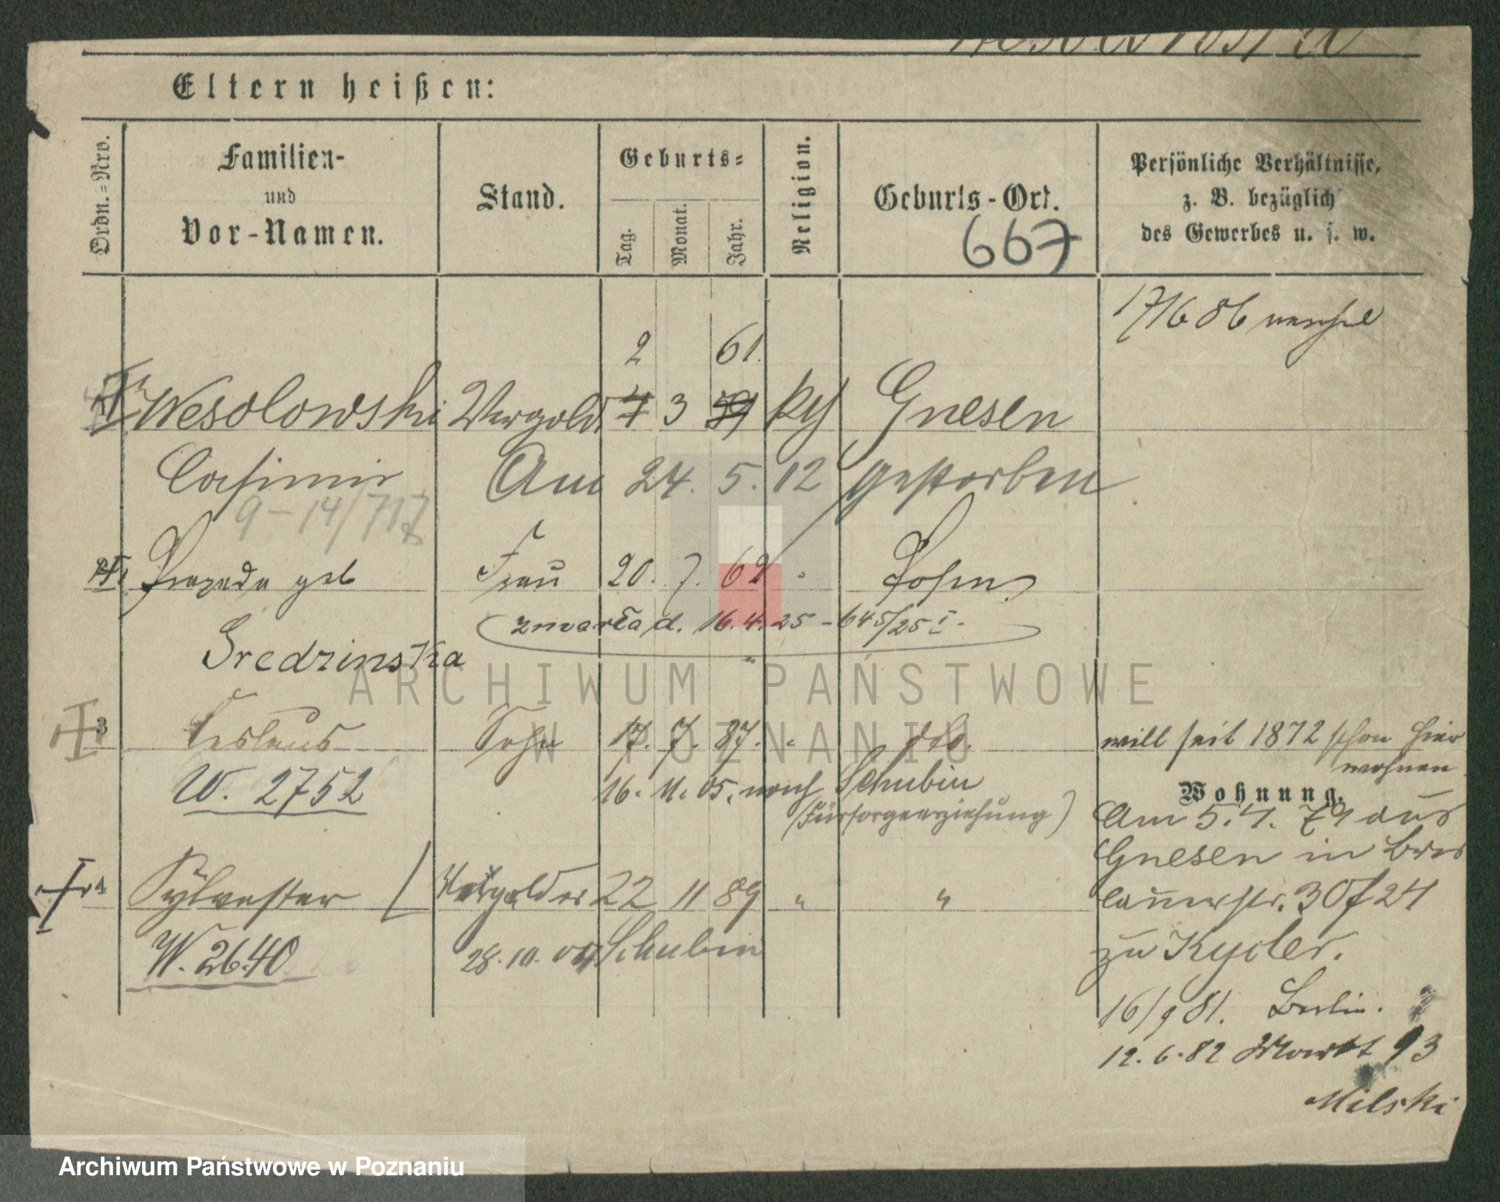 Eltern heißen:
Ordn.=Nro.
Familien-
und
Vor-Namen.
Stand.
Geburts=
Tag.
Monat.
Jahr.
Religion.
Geburts-Ort.
667
Persönliche Verhältnisse,
z. B. bezüglich
des Gewerbes u. s. w.
17/6 86
2 61.
Wesolowski Vergold. 4 3 59 Gnesen
Casimir Am 24. 5. 12 gestorben
9-14/717
geb Frau 20. 7. 62 Posen
zmarła d. 16.4.25 - 645/25 I.
Sredzinska
ARCHIWUM PAŃSTWOWE
W POZNANIU
3 Ceslaus Sohn 17. 7. 87. do. will seit 1872 schon hier
wohnen
W. 2752 16. 11. 05. nach Schubin
(Fürsorgeerziehung)
Wohnung.
Am 5.4. 79 aus
Gnesen in Bres
4 Sylvester Vergolder 22 11 89 " " lauerstr. 30 f 24
W. 2640 28.10.04 Schubin zu Kycler.
16/9 81. Berlin.
12.6.82 Markt 93
Milski
Archiwum Państwowe w Poznaniu